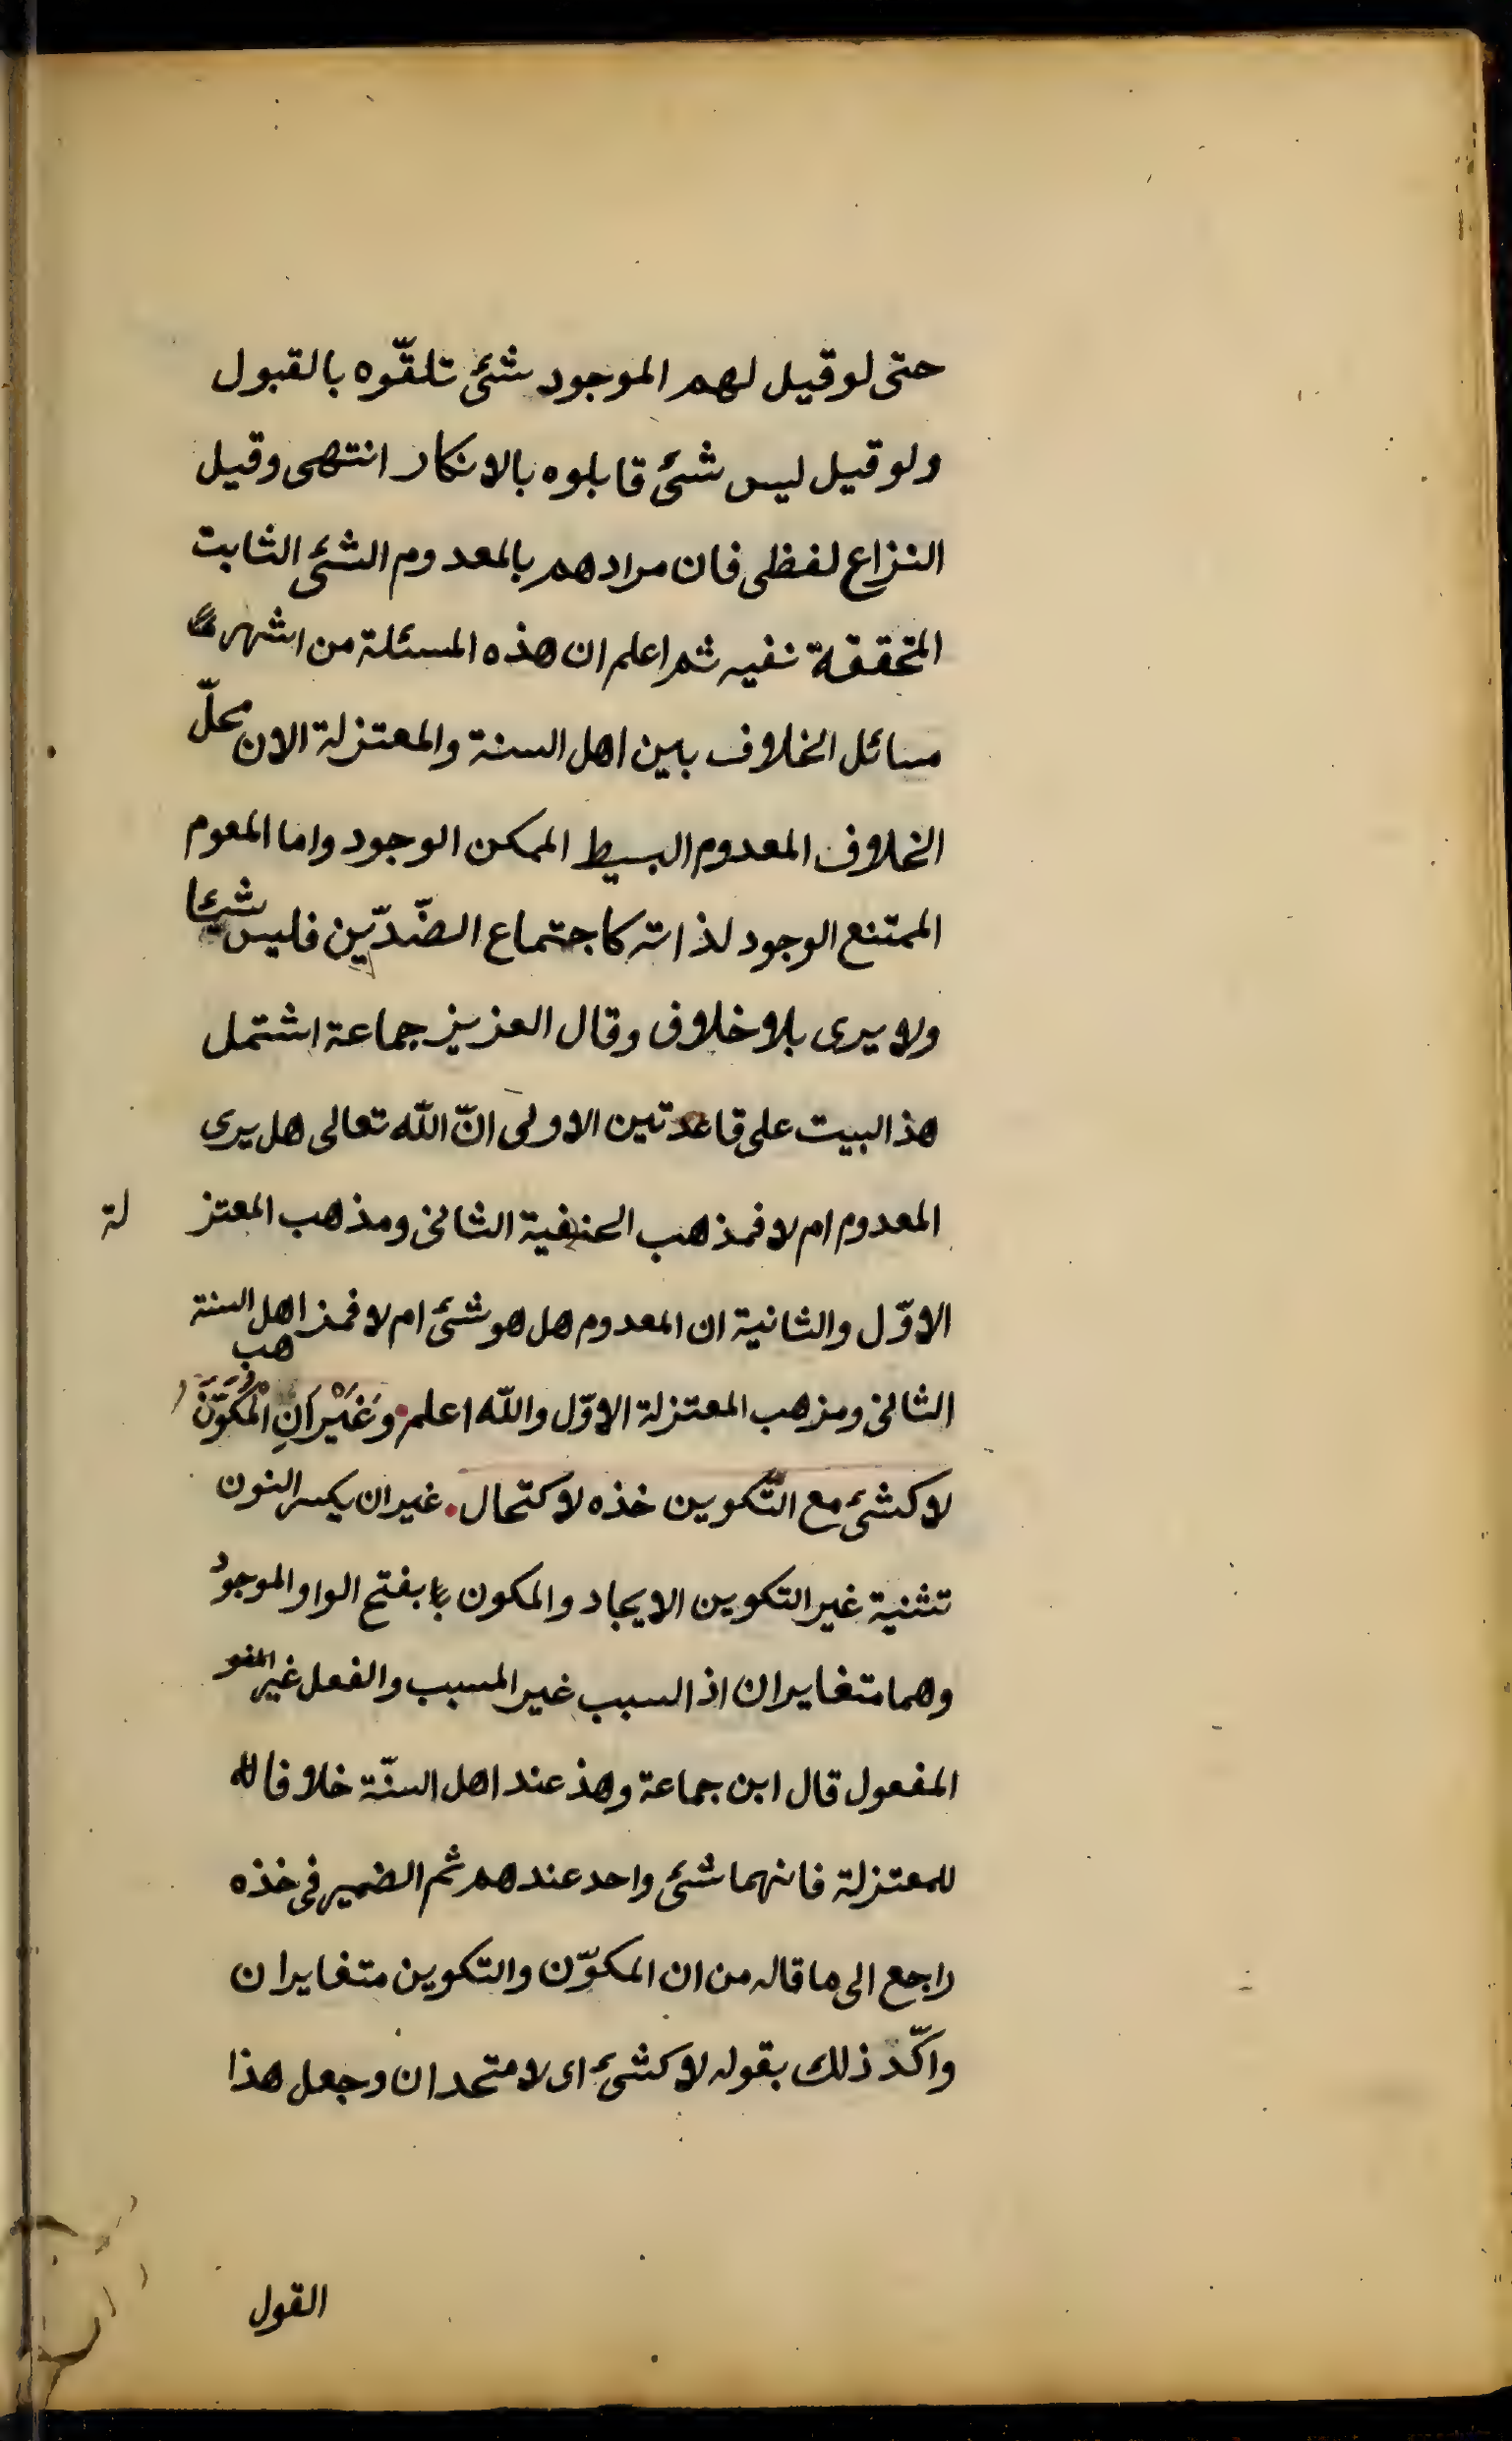 حتى لو قيل لهم الموجود شئ تلقّوه بالقبول
ولو قيل ليس شئ قابلوه بالانكار انتهى وقيل
النزاع لفظى فان مرادهم بالمعدوم الشئ الثابت
المتحققة نفيه ثم اعلم ان هذه المسئلة من اشهر
مسائل الخلاف بين اهل السنة والمعتزلة الان محلّ
الخلاف المعدوم البسيط الممكن الوجود واما المعوم
الممتنع الوجود لذاته كاجتماع الضّدّين فليس شيئا
ولا يرى بلا خلاف وقال العزيز جماعة اشتمل
هذ البيت على قاعدتين الاولى انّ الله تعالى هل يرى
المعدوم ام لا فمذهب الحنفية الثانى ومذهب المعتز لة
الاوّل والثانية ان المعدوم هل هو شئ ام لا فمذهب اهل السنة
الثانى ومذهب المعتزلة الاوّل والله اعلم وَغَيْرَانِ الْمُكَوَّنُ
لا كشئ مع التّكوين خذه لاكتحال غيران بكسر النون
تثنية غير التكوين الايجاد والمكون بفتح الواو الموجود
وهما متغايران اذ السبب غير المسبب والفعل غير المفعو
المفعول قال ابن جماعة وهذ عند اهل السنّة خلافا لله
للمعتزلة فانهما شئ واحد عندهم ثم الضمير فى خذه
راجع الى ما قاله من ان المكوّن والتكوين متغايران
واكّد ذلك بقوله لا كشئ اى لا متحدان وجعل هذا
القول